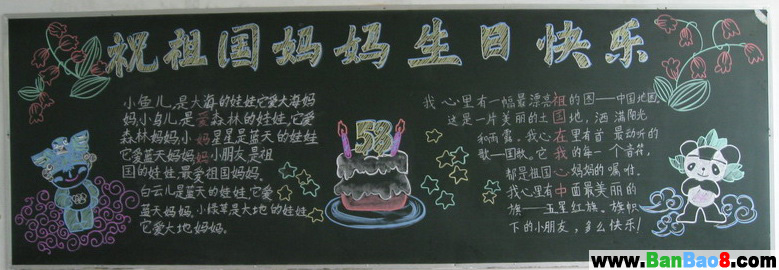 祝祖国妈妈生日快乐
小鱼儿,是大海的娃娃,它爱大海妈
妈,小鸟儿是爱森林的娃娃,它爱
森林妈妈,小妈星星是蓝天的娃娃
它爱蓝天妈妈妈小朋友是祖
国的娃娃,最爱祖国妈妈,
白云儿是蓝天的娃娃,它爱
蓝天妈妈,小绿草是大地的娃娃,
它爱大地妈妈。
58
我心里有一幅最漂亮祖的图——中国地图,
这是一片美丽的土国地,洒满阳光
和雨露。我心在里有首最动听的
歌——国歌。它我的每一个音符,
都是祖国心妈妈的嘱咐,
我心里有中面最美丽的
旗——五星红旗。旗帜
下的小朋友,多么快乐!
www.BanBao8.com